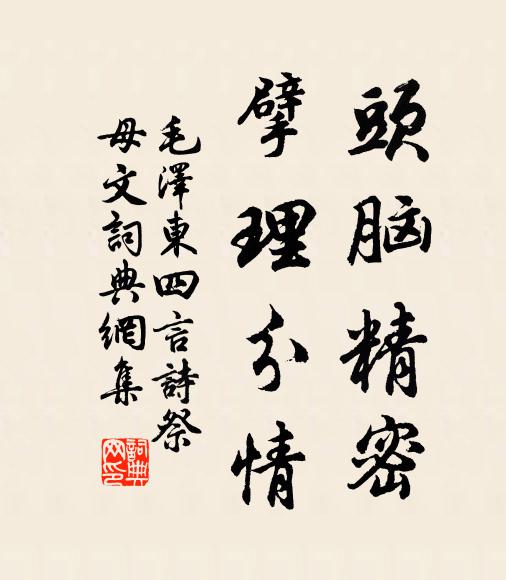 頭脑精密
擘理分情
毛澤東四言詩祭
母文詞典網集
詞典
网印